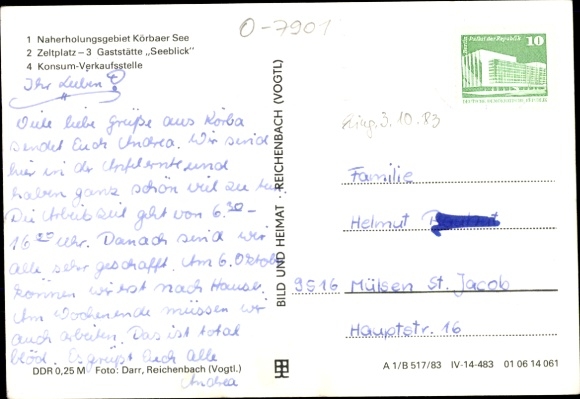 O-7901
1 Naherholungsgebiet Körbaer See
2 Zeltplatz – 3 Gaststätte „Seeblick"
4 Konsum-Verkaufsstelle
Ihr Lieben!
Viele liebe Grüße aus Körba
sendet Euch Andrea. Wir sind
hier in der Apfelernte und
haben ganz schön viel zu tun.
Die Arbeitszeit geht von 6.30 –
16 Uhr. Danach sind wir
alle sehr geschafft. Am 6. Oktober
können wir erst nach Hause.
Am Wochenende müssen wir
auch arbeiten. Das ist total
blöd. Es grüßt Euch alle
Andrea
DDR 0,25 M Foto: Darr, Reichenbach (Vogtl.)
BILD UND HEIMAT · REICHENBACH (VOGTL)
Berlin Palast der Republik 10
DEUTSCHE DEMOKRATISCHE REPUBLIK
3.10.83
Familie
Helmut
9516 Mülsen St. Jacob
Hauptstr. 16
A 1/B 517/83 IV-14-483 01 06 14 061